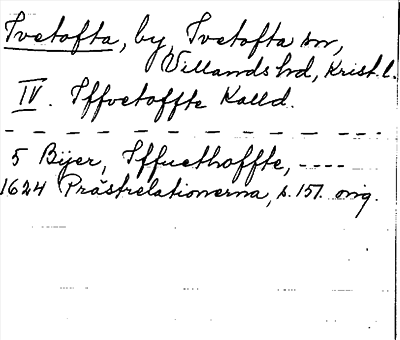 Ivetofta, by, Ivetofta sn,
Villands hd, Krist. l.
IV. Iffvetoffte Kalld.
5 Bÿer, Iffuethoffte, ----
1624 Prästrelationerna, s. 157. orig.